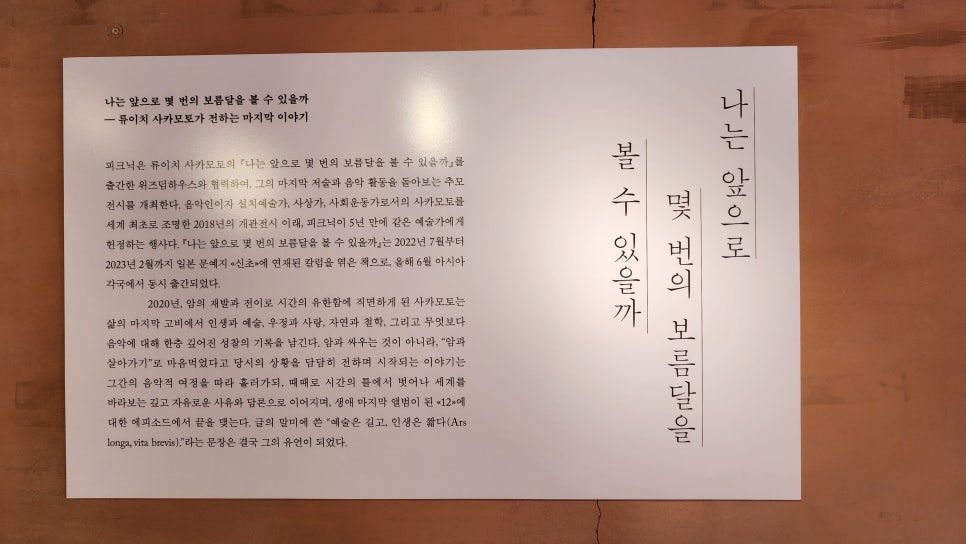 나는 앞으로 몇 번의 보름달을 볼 수 있을까
— 류이치 사카모토가 전하는 마지막 이야기
피크닉은 류이치 사카모토의 『나는 앞으로 몇 번의 보름달을 볼 수 있을까』를
출간한 위즈덤하우스와 협력하여, 그의 마지막 저술과 음악 활동을 돌아보는 추모
전시를 개최한다. 음악인이자 설치예술가, 사상가, 사회운동가로서의 사카모토를
세계 최초로 조명한 2018년의 개관전시 이래, 피크닉이 5년 만에 같은 예술가에게
헌정하는 행사다. 『나는 앞으로 몇 번의 보름달을 볼 수 있을까』는 2022년 7월부터
2023년 2월까지 일본 문예지 «신초»에 연재된 칼럼을 엮은 책으로, 올해 6월 아시아
각국에서 동시 출간되었다.
2020년, 암의 재발과 전이로 시간의 유한함에 직면하게 된 사카모토는
삶의 마지막 고비에서 인생과 예술, 우정과 사랑, 자연과 철학, 그리고 무엇보다
음악에 대해 한층 깊어진 성찰의 기록을 남긴다. 암과 싸우는 것이 아니라, “암과
살아가기”로 마음먹었다고 당시의 상황을 담담히 전하며 시작되는 이야기는
그간의 음악적 여정을 따라 흘러가되, 때때로 시간의 틀에서 벗어나 세계를
바라보는 깊고 자유로운 사유와 담론으로 이어지며, 생애 마지막 앨범이 된 «12»에
대한 에피소드에서 끝을 맺는다. 글의 말미에 쓴 “예술은 길고, 인생은 짧다(Ars
longa, vita brevis).”라는 문장은 결국 그의 유언이 되었다.
나는 앞으로
몇 번의 보름달을
볼 수 있을까